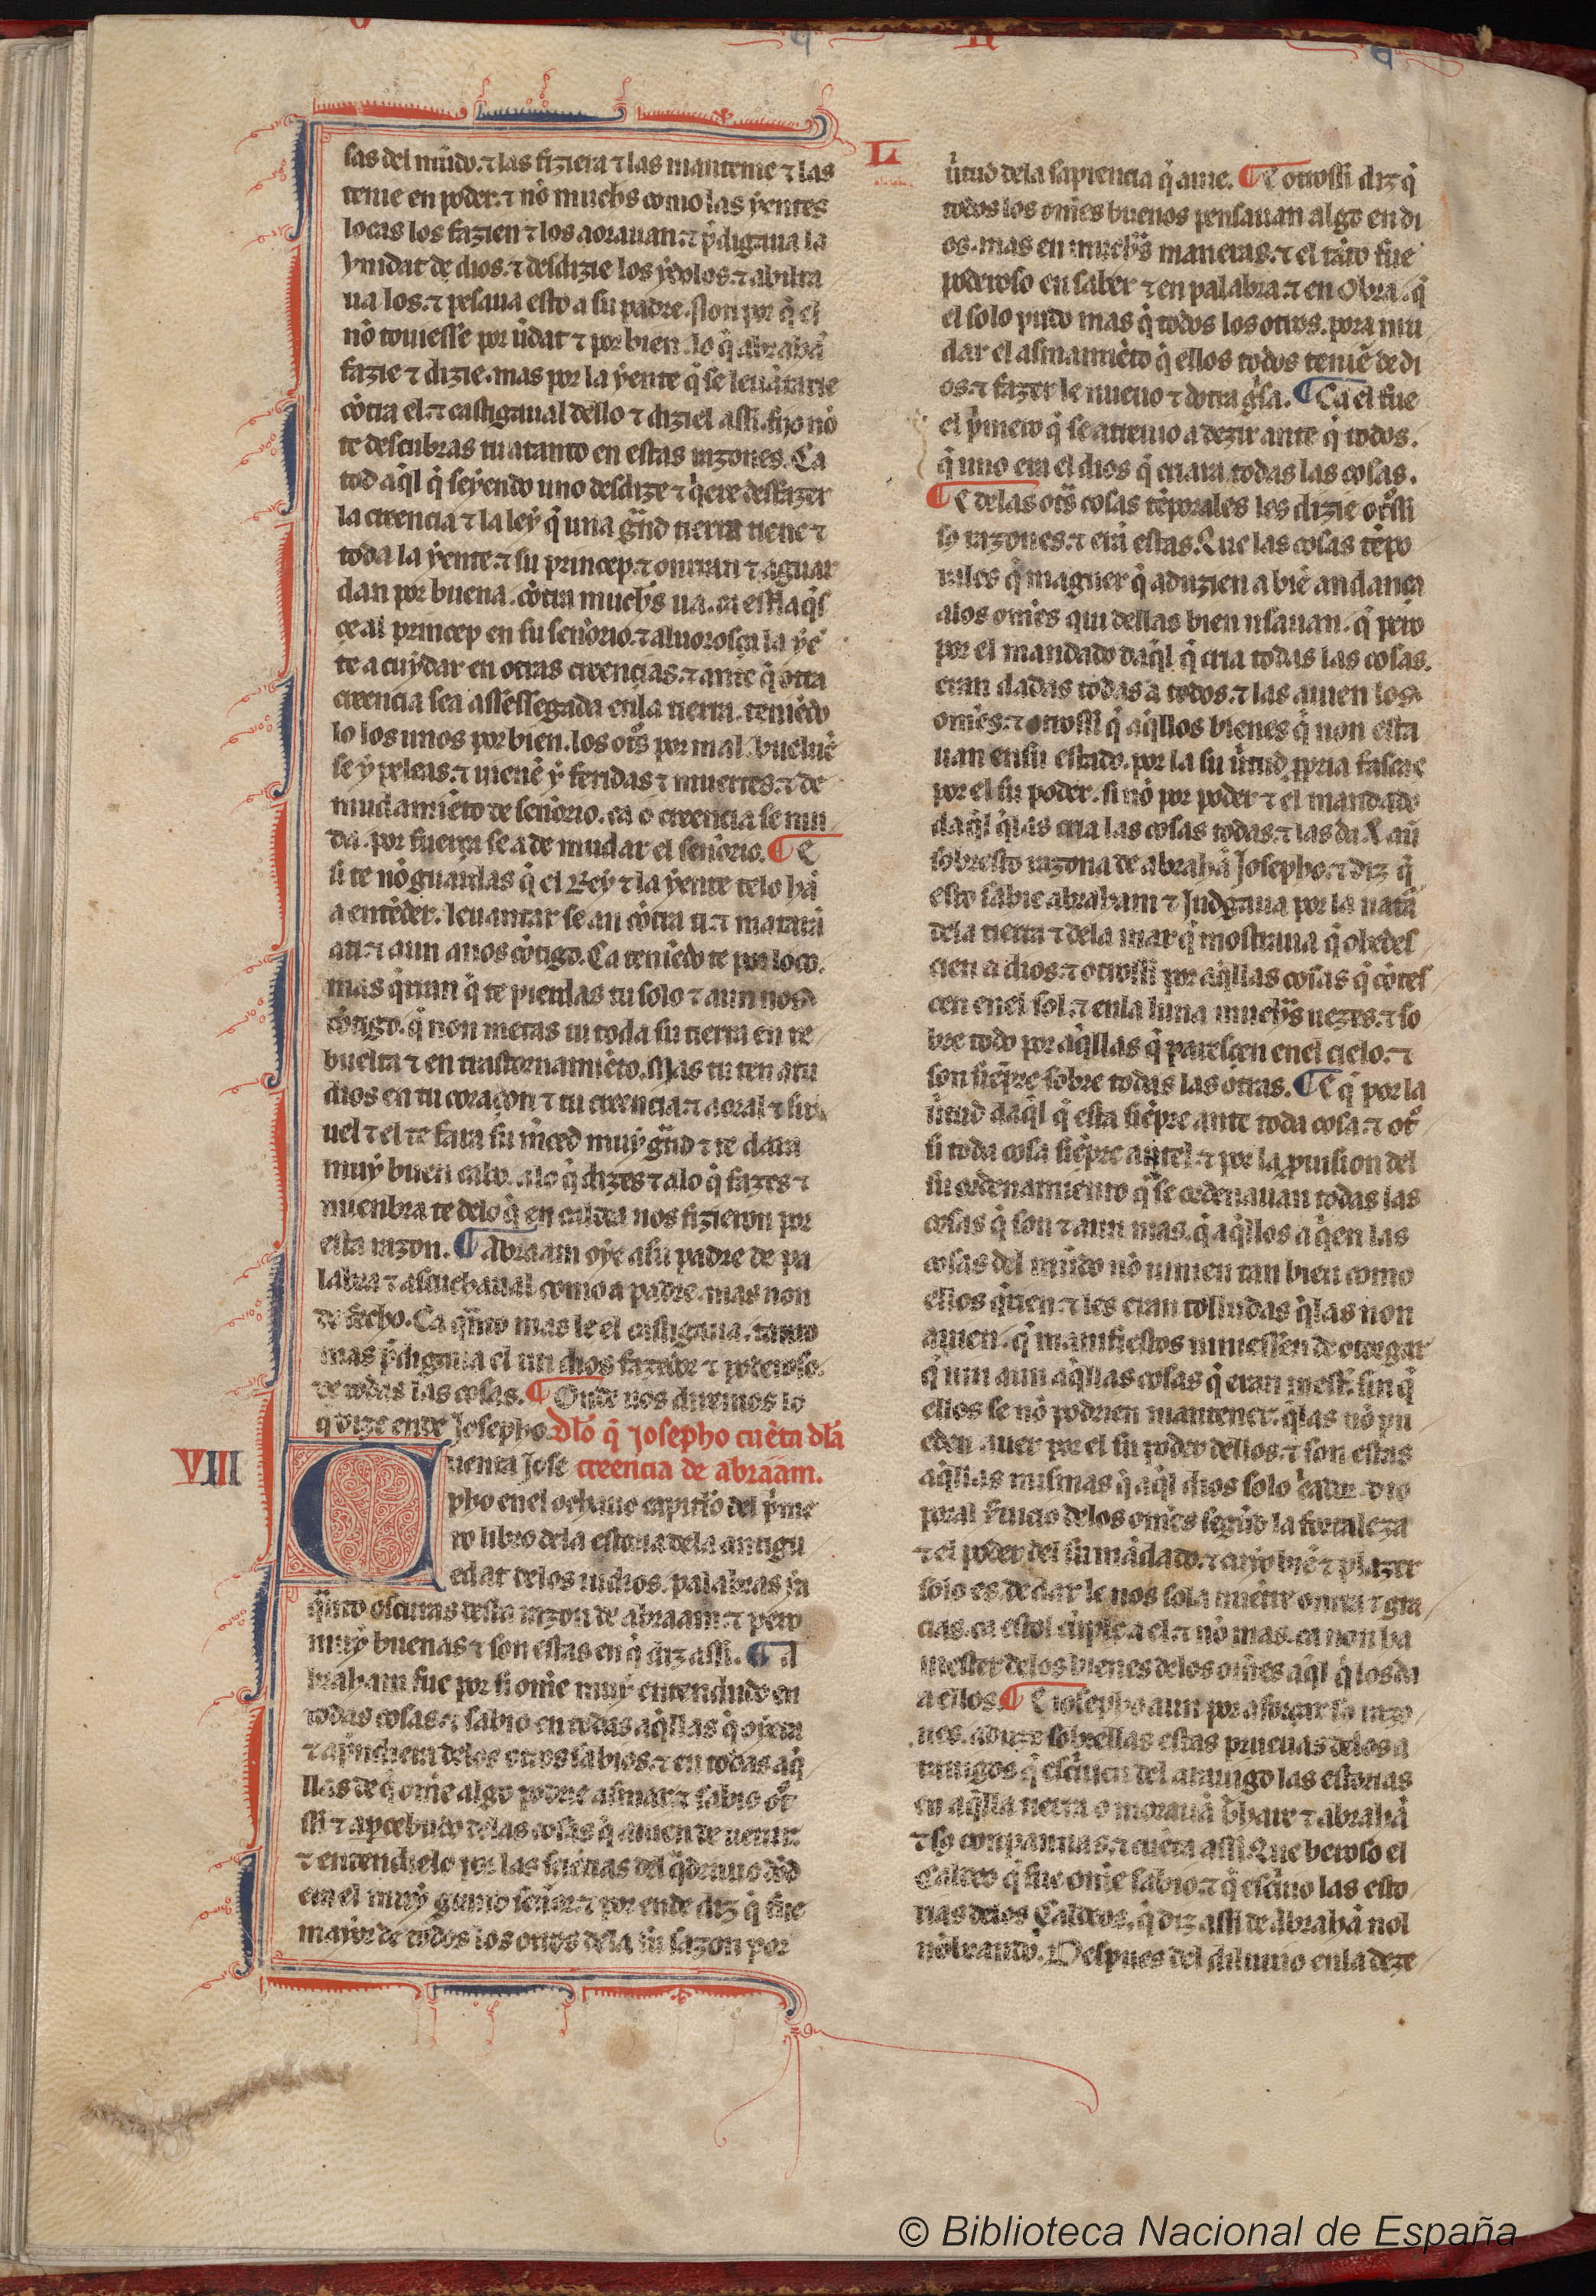 sas del mũdo. ⁊ las fiziera ⁊ las mantenie ⁊ las
tenie en poder. ⁊ nõ muchos como las yentes
locas los fazien ⁊ los aorauan. ⁊ p̃digaua la
ynidat de dios. ⁊ desdizie los ydolos. ⁊ abilta
ua los. ⁊ pesaua esto a su padre. Non por q̃ el
nõ touiesse por ũdat ⁊ por bien. lo q̃ abrahã
fazie ⁊ dizie. mas por la yente q̃ se leuãtarie
cõtra el. ⁊ castigaual dello ⁊ diziel assi. fijo nõ
te descubras tu atanto en estas razones. Ca
tod aq̃l q̃ seyendo uno desdize ⁊ q̃ere desfazer
la creencia ⁊ la ley q̃ una g̃nd tierra tiene ⁊
toda la yente. ⁊ su princep. ⁊ onrran ⁊ aguar
dan por buena. cõtra muchos ua. ca
ce al princep en su sennorio. ⁊ aluoroça la yẽ
te a cuydar en otras creencias. ⁊ ante q̃ otra
creencia sea assessegada enla tierra. teniẽdo
lo los unos por bien. los ot̃s por mal. bueluẽ
se y peleas. ⁊ uienẽ y feridas ⁊ muertes. ⁊ de
mudamiẽto de sennorio. ca o creencia se mu
da. por fuerça se a de mudar el sennorio. ¶ E
si te nõ guardas q̃ el Rey ⁊ la yente telo hã
a entẽder. leuantar se an cõtra ti. ⁊ mataran
ati. ⁊ aun anos cõtigo. Ca teniẽdo te por loco.
mas q̃rran q̃ te pierdas tu solo ⁊ aun nos
cõtigo. q̃ non metas tu toda su tierra en re
buelta ⁊ en trastornamiẽto. Mas tu ten atu
dios en tu coraçon ⁊ tu creencia. ⁊ aoral ⁊ sir
uel ⁊ el te fara su m̃ced muy g̃nd ⁊ te dara
muy buen cabo. alo q̃ dizes ⁊ alo q̃ fazes ⁊
mienbra te delo q̃ en caldea nos fizieron por
esta razon. ¶ Abraam oye asu padre de pa
labra ⁊ ascuchaual como a padre. mas non
de fecho. Ca q̃nto mas le el castigaua. tanto
mas p̃digaua el un dios fazedor ⁊ poderoso.
de todas las cosas. ¶ Onde uos diremos lo
q̃ dize ende Josepho. Dlo q̃ Josepho cuẽta dla
VIII
Cuenta Jose creencia de abraam.
pho enel ochauo capitlo del p̃me
ro libro dela estoria dela antigu
edat delos iudios. palabras ya
q̃nto oscuras desta razon de abraam. ⁊ pero
muy buenas ⁊ son estas en q̃ diz assi. ¶ A
braham fue por si omẽ muy entendudo en
todas cosas. ⁊ sabio en todas aq̃llas q̃ oyera
⁊ ap̃ndiera delos otros sabios. ⁊ en todas aq̃
llas de q̃ omẽ algo podrie asmar. ⁊ sabio ot̃
ssi ⁊ ap̃cebudo delas cosas q̃ auien de uenir.
⁊ entendielo por las
era el muy ⁊ por ende diz q̃ fue
mayor de todos los otros dela su sazon por
L
ũtud dela sapiencia q̃ auie. ¶ E otrossi diz q̃
todos los omẽs buenos pensauan algo en di
os. mas en muchas maneras. ⁊ el tãto fue
poderoso en saber ⁊ en palabra. ⁊ en Obra. q̃
el solo pudo mas q̃ todos los otros. pora mu
dar el asmamiẽto q̃ ellos todos teniẽ de di
os. ⁊ fazer le nueuo ⁊ dotra g̃sa. ¶ Ca el fue
el p̃mero q̃ se atreuio a dezir ante q̃ todos.
q̃ uno era el dios q̃ criara todas las cosas.
¶ E delas ot̃s cosas tẽporales les dizie ot̃ssi
so razones. ⁊ erã estas. Que las cosas tẽpo
rales q̃ maguer q̃ aduzien a biẽ andança
alos omẽs qui dellas bien usauan. q̃ pero
por el mandado daq̃l q̃ cria todas las cosas.
eran dadas todas a todos. ⁊ las auien los
omẽs. ⁊ otrossi q̃ aq̃llos bienes q̃ non esta
uan en su estado. por la su ũtud ppria
por el su poder. si nõ por poder ⁊ el mandado
daq̃l q̃las cria las cosas todas. ⁊ las da. E aũ
sobresto razona de abrahã Josepho. ⁊ diz q̃
esto sabie abraham ⁊ Judgaua por la nat̃a
dela tierra ⁊ dela mar q̃ mostraua q̃ obedes
cien a dios. ⁊ otrossi por aq̃llas cosas q̃ cõtes
cen enel sol. ⁊ enla luna muchas uezes. ⁊ so
bre todo por aq̃llas q̃ parescen enel cielo. ⁊
son siẽpre sobre todas las otras. ¶ E q̃ por la
ũtud daq̃l q̃ esta siẽpre ante toda cosa. ⁊ ot̃
si toda cosa siẽpre antel. ⁊ por la prouision del
su ordenamiento q̃ se ordenauan todas las
cosas q̃ son ⁊ aun mas. q̃ aq̃llos a q̃en las
cosas del mũdo nõ uinien tan bien como
ellos q̃rien. ⁊ les eran tolludas q̃las non
auien. q̃ manifiestos uuiessen de otorgar
q̃ nin aun aq̃llas cosas q̃ eran sin q̃
ellos se nõ podrien mantener. q̃las nõ pu
eden auer por el su poder dellos. ⁊ son estas
aq̃llas mismas q̃ aq̃l dios solo
poral siruicio delos omẽs segũd la fortaleza
⁊ el poder del su mãdado. ⁊ cuyo biẽ ⁊ plazer
solo es. de dar le nos sola miẽtre onrra ⁊ gra
cias. ca estol cũple a el. ⁊ nõ mas. ca non ha
mester delos bienes delos omẽs aq̃l q̃ los da
a ellos. ¶ E iosepho aun por aforçar so razo
nes. aduze sobrellas estas prueuas delos a
ntigos q̃ escriuen del antigo las estorias
en aq̃lla tierra o morauã ⁊ abrahã
⁊ so conpannas. ⁊ cuẽta assi. Que beroso el
Caldeo q̃ fue omẽ sabio. ⁊ q̃ escriuo las esto
rias delos Caldeos, q̃ diz assi de Abrahã nol
nõbrando. Despues del diluuio enla deze
© Biblioteca Nacional de España